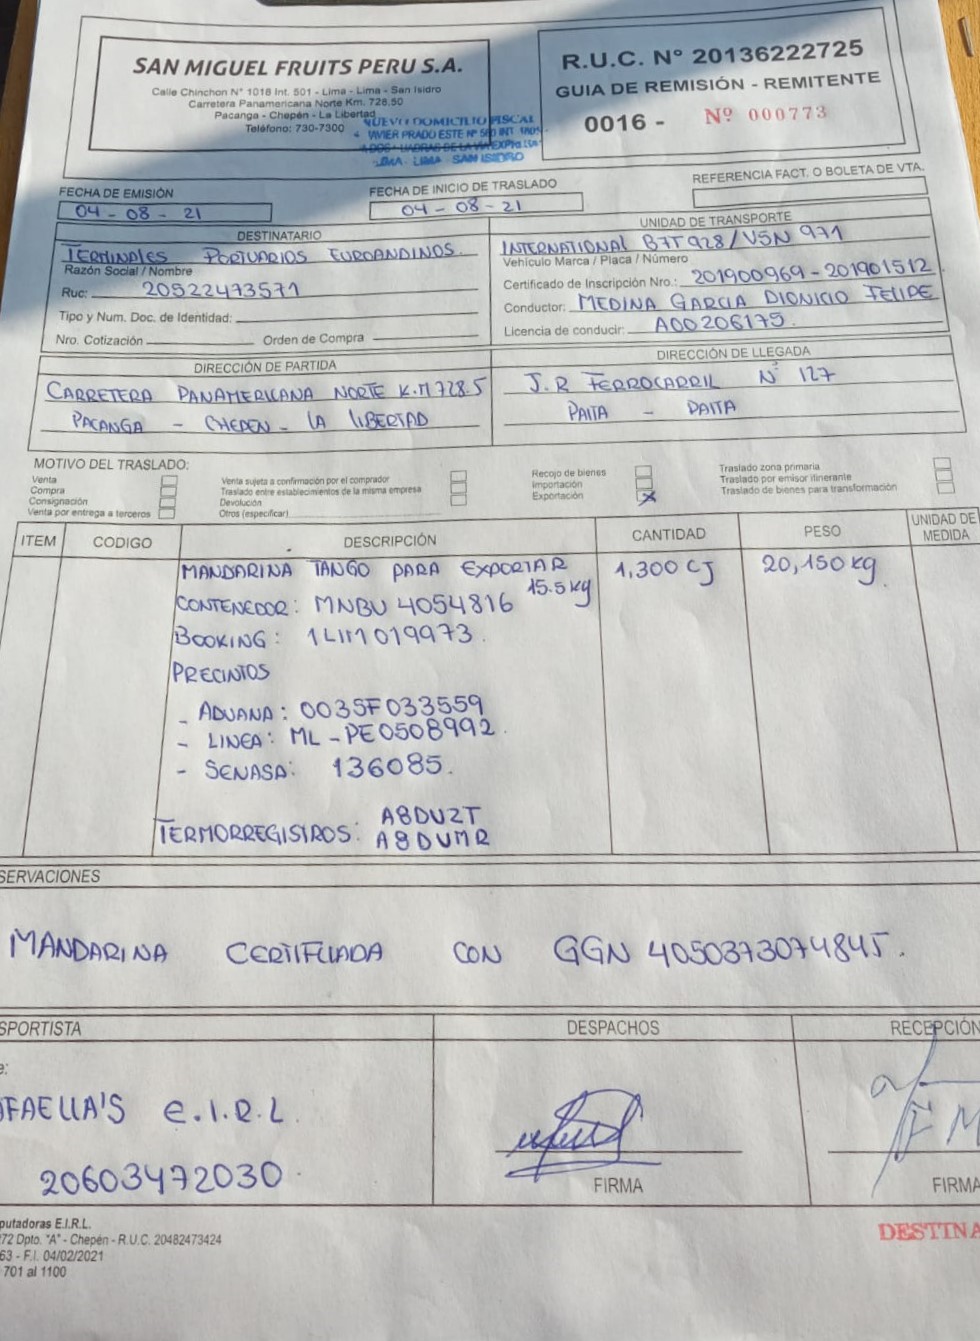 SAN MIGUEL FRUITS PERU S.A.
Calle Chinchon N° 1018 Int. 501 - Lima - Lima - San Isidro
Carretera Panamericana Norte Km. 728.50
Pacanga - Chepén - La Libertad
Teléfono: 730-7300
NUEVO DOMICILIO FISCAL
JAVIER PRADO ESTE Nº
LIMA - LIMA - SAN ISIDRO
R.U.C. N° 20136222725
GUIA DE REMISIÓN - REMITENTE
0016 - Nº 000773
FECHA DE EMISIÓN
04 - 08 - 21
FECHA DE INICIO DE TRASLADO
04 - 08 - 21
REFERENCIA FACT. O BOLETA DE VTA.
DESTINATARIO
TERMINALES PORTUARIOS EUROANDINOS.
Razón Social / Nombre
Ruc: 20522473571
Tipo y Num. Doc. de Identidad:
Nro. Cotización Orden de Compra
UNIDAD DE TRANSPORTE
INTERNATIONAL B7T 928 / V5N 971
Vehículo Marca / Placa / Número
Certificado de Inscripción Nro.: 201900969 - 201901512
Conductor: MEDINA GARCIA DIONICIO FELIPE
Licencia de conducir: A00206175.
DIRECCIÓN DE PARTIDA
CARRETERA PANAMERICANA NORTE K.M 728.5
PACANGA - CHEPEN - LA LIBERTAD
DIRECCIÓN DE LLEGADA
J.R FERROCARRIL N° 127
PAITA - PAITA
MOTIVO DEL TRASLADO:
Venta
Compra
Consignación
Venta por entrega a terceros
Venta sujeta a confirmación por el comprador
Traslado entre establecimientos de la misma empresa
Devolución
Otros (especificar)
Recojo de bienes
Importación
Exportación X
Traslado zona primaria
Traslado por emisor itinerante
Traslado de bienes para transformación
ITEM CODIGO DESCRIPCIÓN CANTIDAD PESO UNIDAD DE MEDIDA
MANDARINA TANGO PARA EXPORTAR 1,300 CJ 20,150 kg
15.5 kg
CONTENEDOR: MNBU 4054816
BOOKING: 1LIM019973.
PRECINTOS
- ADUANA: 0035F033559
- LINEA: ML - PE0508992.
- SENASA: 136085.
TERMORREGISTROS: A8DUZT
A8DUMR
SERVACIONES
MANDARINA CERTIFICADA CON GGN 4050373074845.
SPORTISTA
DESPACHOS
RECEPCIÓN
e:
FAELLA'S E.I.R.L.
20603472030.
FIRMA
FIRMA
putadoras E.I.R.L.
72 Dpto. "A" - Chepén - R.U.C. 20482473424
63 - F.I. 04/02/2021
701 al 1100
DESTINA